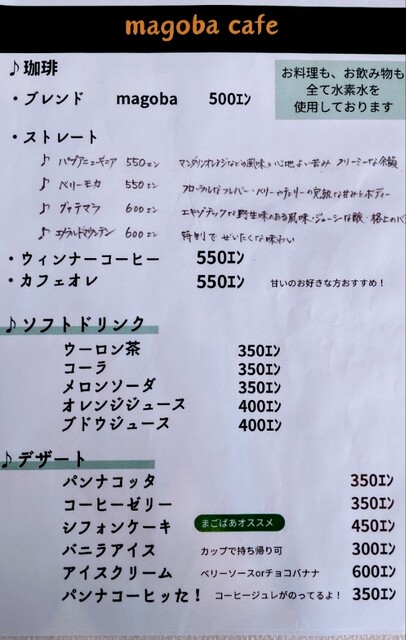 magoba cafe
♪珈琲
お料理も、お飲み物も
全て水素水を
使用しております
・ブレンド magoba 500エン
・ストレート
♪ パプアニューギニア 550エン マンダリンオレンジなどの風味と心地よい苦み クリーミーな余韻
♪ ベリーモカ 550エン フローラルなフレバー・ベリーやチェリーの完熟な甘みとボディー
♪ グァテマラ 600エン エキゾチックな野生味のある風味・ジューシーな酸・格上の
♪ エメラルドマウンテン 600エン 特別で ぜいたくな味わい
・ウィンナーコーヒー 550エン
・カフェオレ 550エン 甘いのお好きな方おすすめ！
♪ソフトドリンク
ウーロン茶 350エン
コーラ 350エン
メロンソーダ 350エン
オレンジジュース 400エン
ブドウジュース 400エン
♪デザート
パンナコッタ 350エン
コーヒーゼリー 350エン
シフォンケーキ まごばあオススメ 450エン
バニラアイス カップで持ち帰り可 300エン
アイスクリーム ベリーソースorチョコバナナ 600エン
パンナコーヒッた！ コーヒージュレがのってるよ！ 350エン